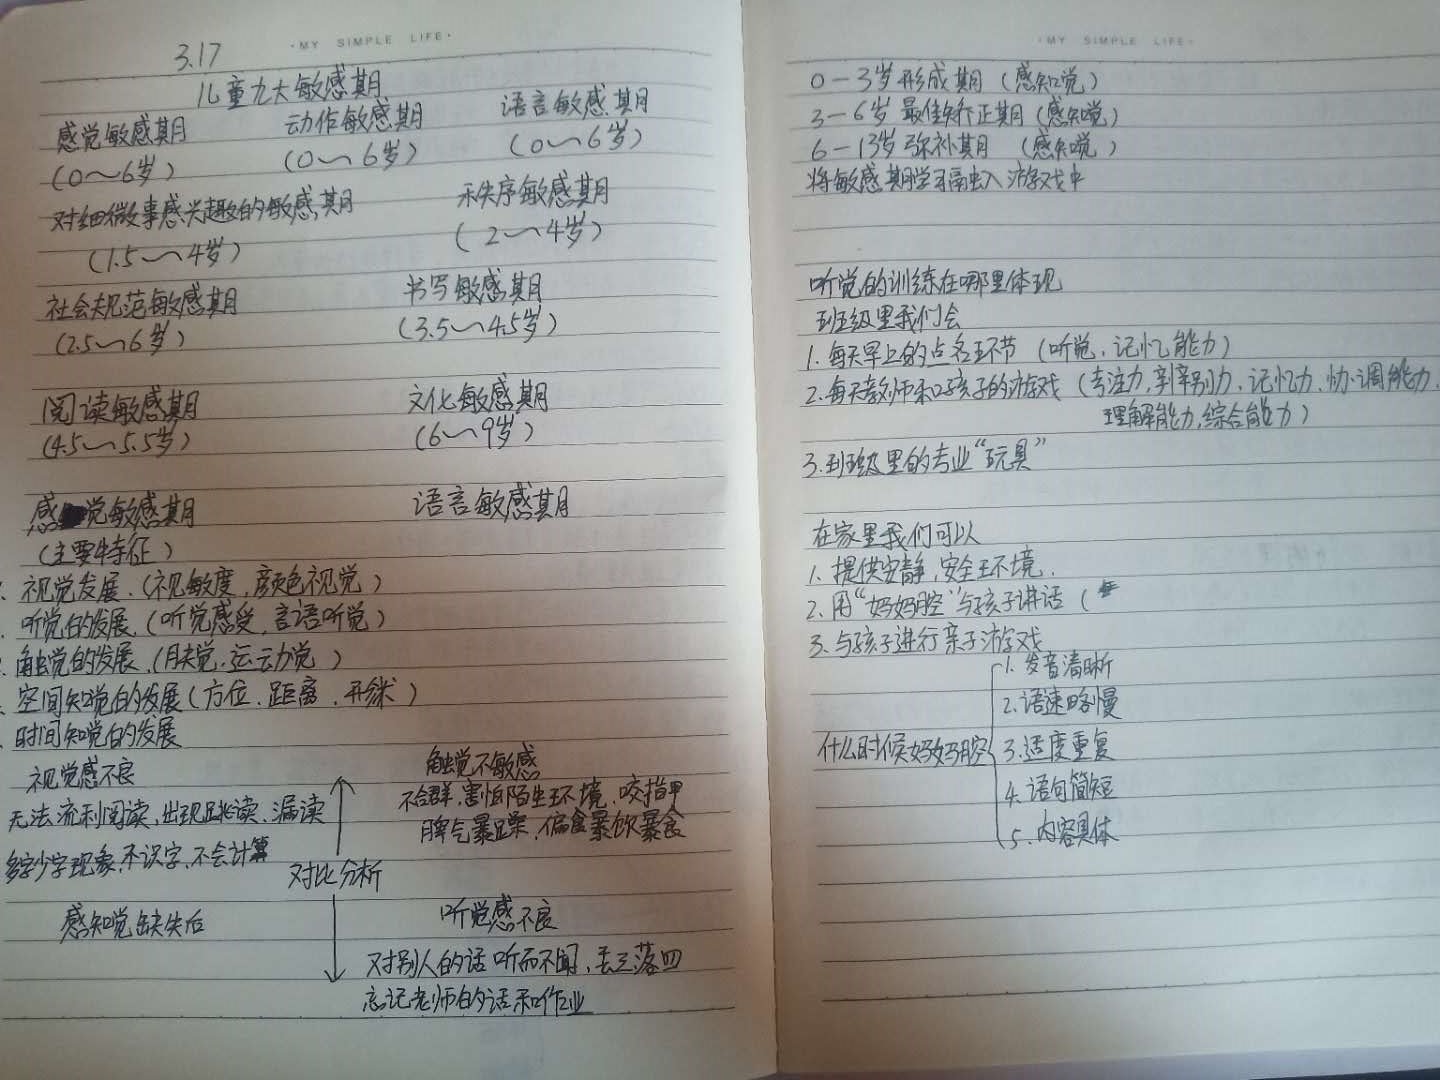 ·MY SIMPLE LIFE·
3.17
儿童九大敏感期
感觉敏感期 动作敏感期 语言敏感期
(0～6岁) (0～6岁) (0～6岁)
对细微事感兴趣的敏感期 秩序敏感期
(1.5～4岁) (2～4岁)
社会规范敏感期 书写敏感期
(2.5～6岁) (3.5～4.5岁)
阅读敏感期 文化敏感期
(4.5～5.5岁) (6～9岁)
感觉敏感期 语言敏感期
(主要特征)
视觉发展.(视敏度,颜色视觉)
听觉的发展.(听觉感受,言语听觉)
触觉的发展.(肤觉.运动觉)
空间知觉的发展(方位.距离.形状)
时间知觉的发展
视觉感不良
无法流利阅读,出现跳读、漏读
多字少字现象,不识字,不会计算
触觉不敏感
不合群,害怕陌生环境、咬指甲
脾气暴躁,偏食暴饮暴食
对比分析
感知觉缺失后
听觉感不良
对别人的话听而不闻,丢三落四
忘记老师的话和作业
·MY SIMPLE LIFE·
0－3岁形成期(感知觉)
3－6岁最佳矫正期(感知觉)
6－13岁弥补其月(感知觉)
将敏感期学习融入游戏中
听觉的训练在哪里体现
班级里我们会
1.每天早上的点名环节(听觉,记忆能力)
2.每天老师和孩子的游戏(专注力,辨别力、记忆力、协调能力,
理解能力,综合能力)
3.班级里的专业"玩具"
在家里我们可以
1.提供安静,安全环境.
2.用"妈妈腔"与孩子讲话(
3.与孩子进行亲子游戏
什么时候妈妈腔
1.发音清晰
2.语速略慢
3.适度重复
4.语句简短
5.内容具体